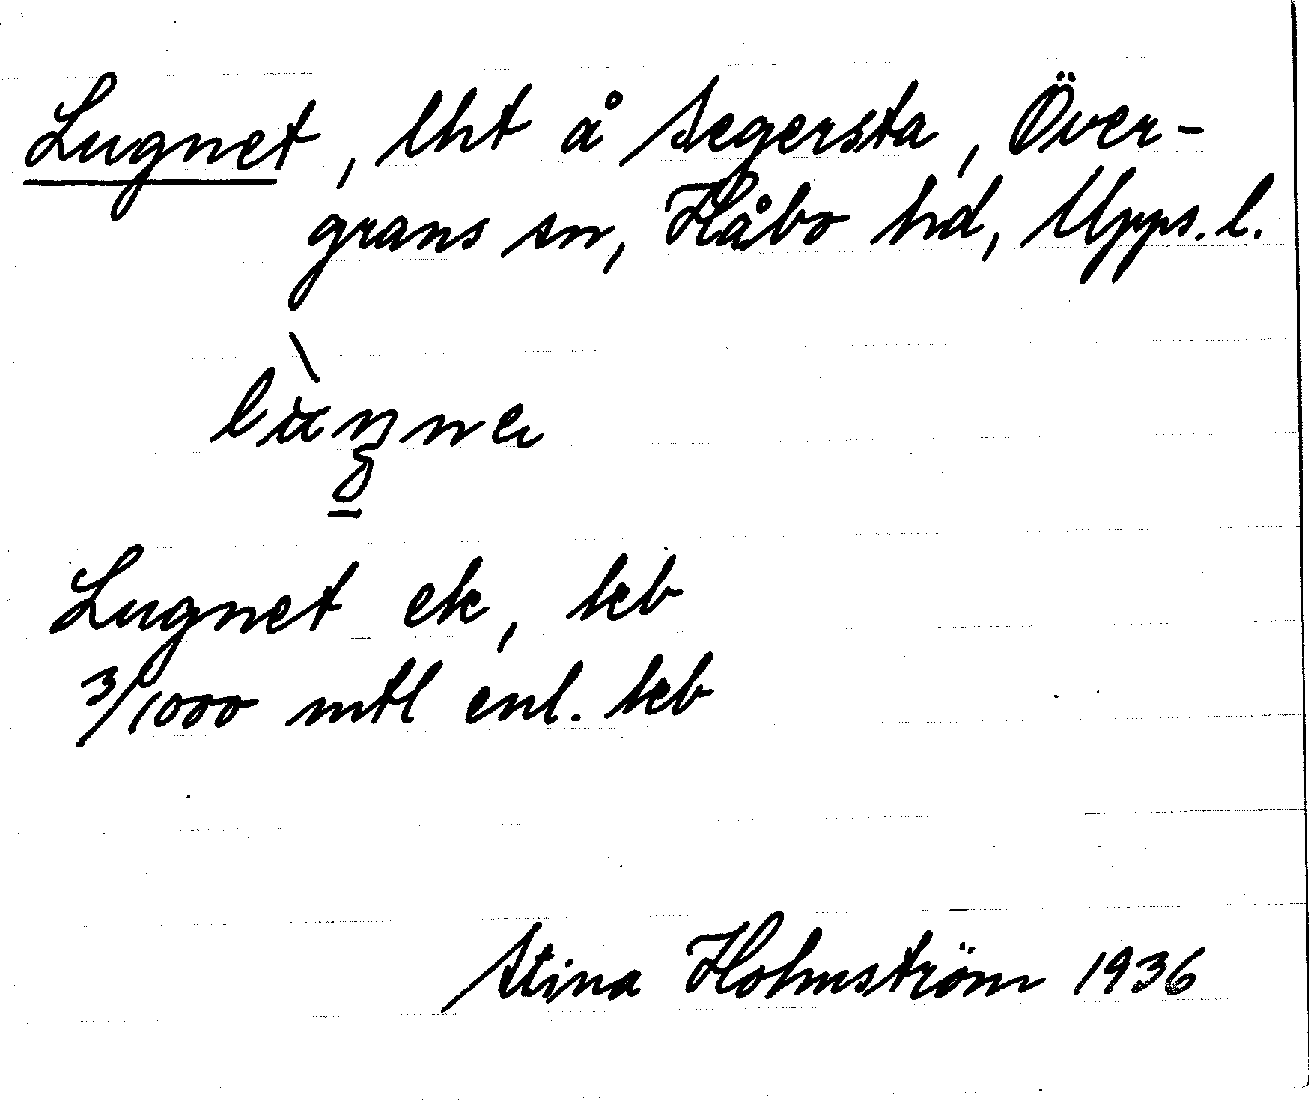 Lugnet, lht å Segersta, Över-
grans sn, Håbo hd, Upps. l.
Lugnet ek, kb
3/1000 mtl enl. kb
Stina Holmström 1936